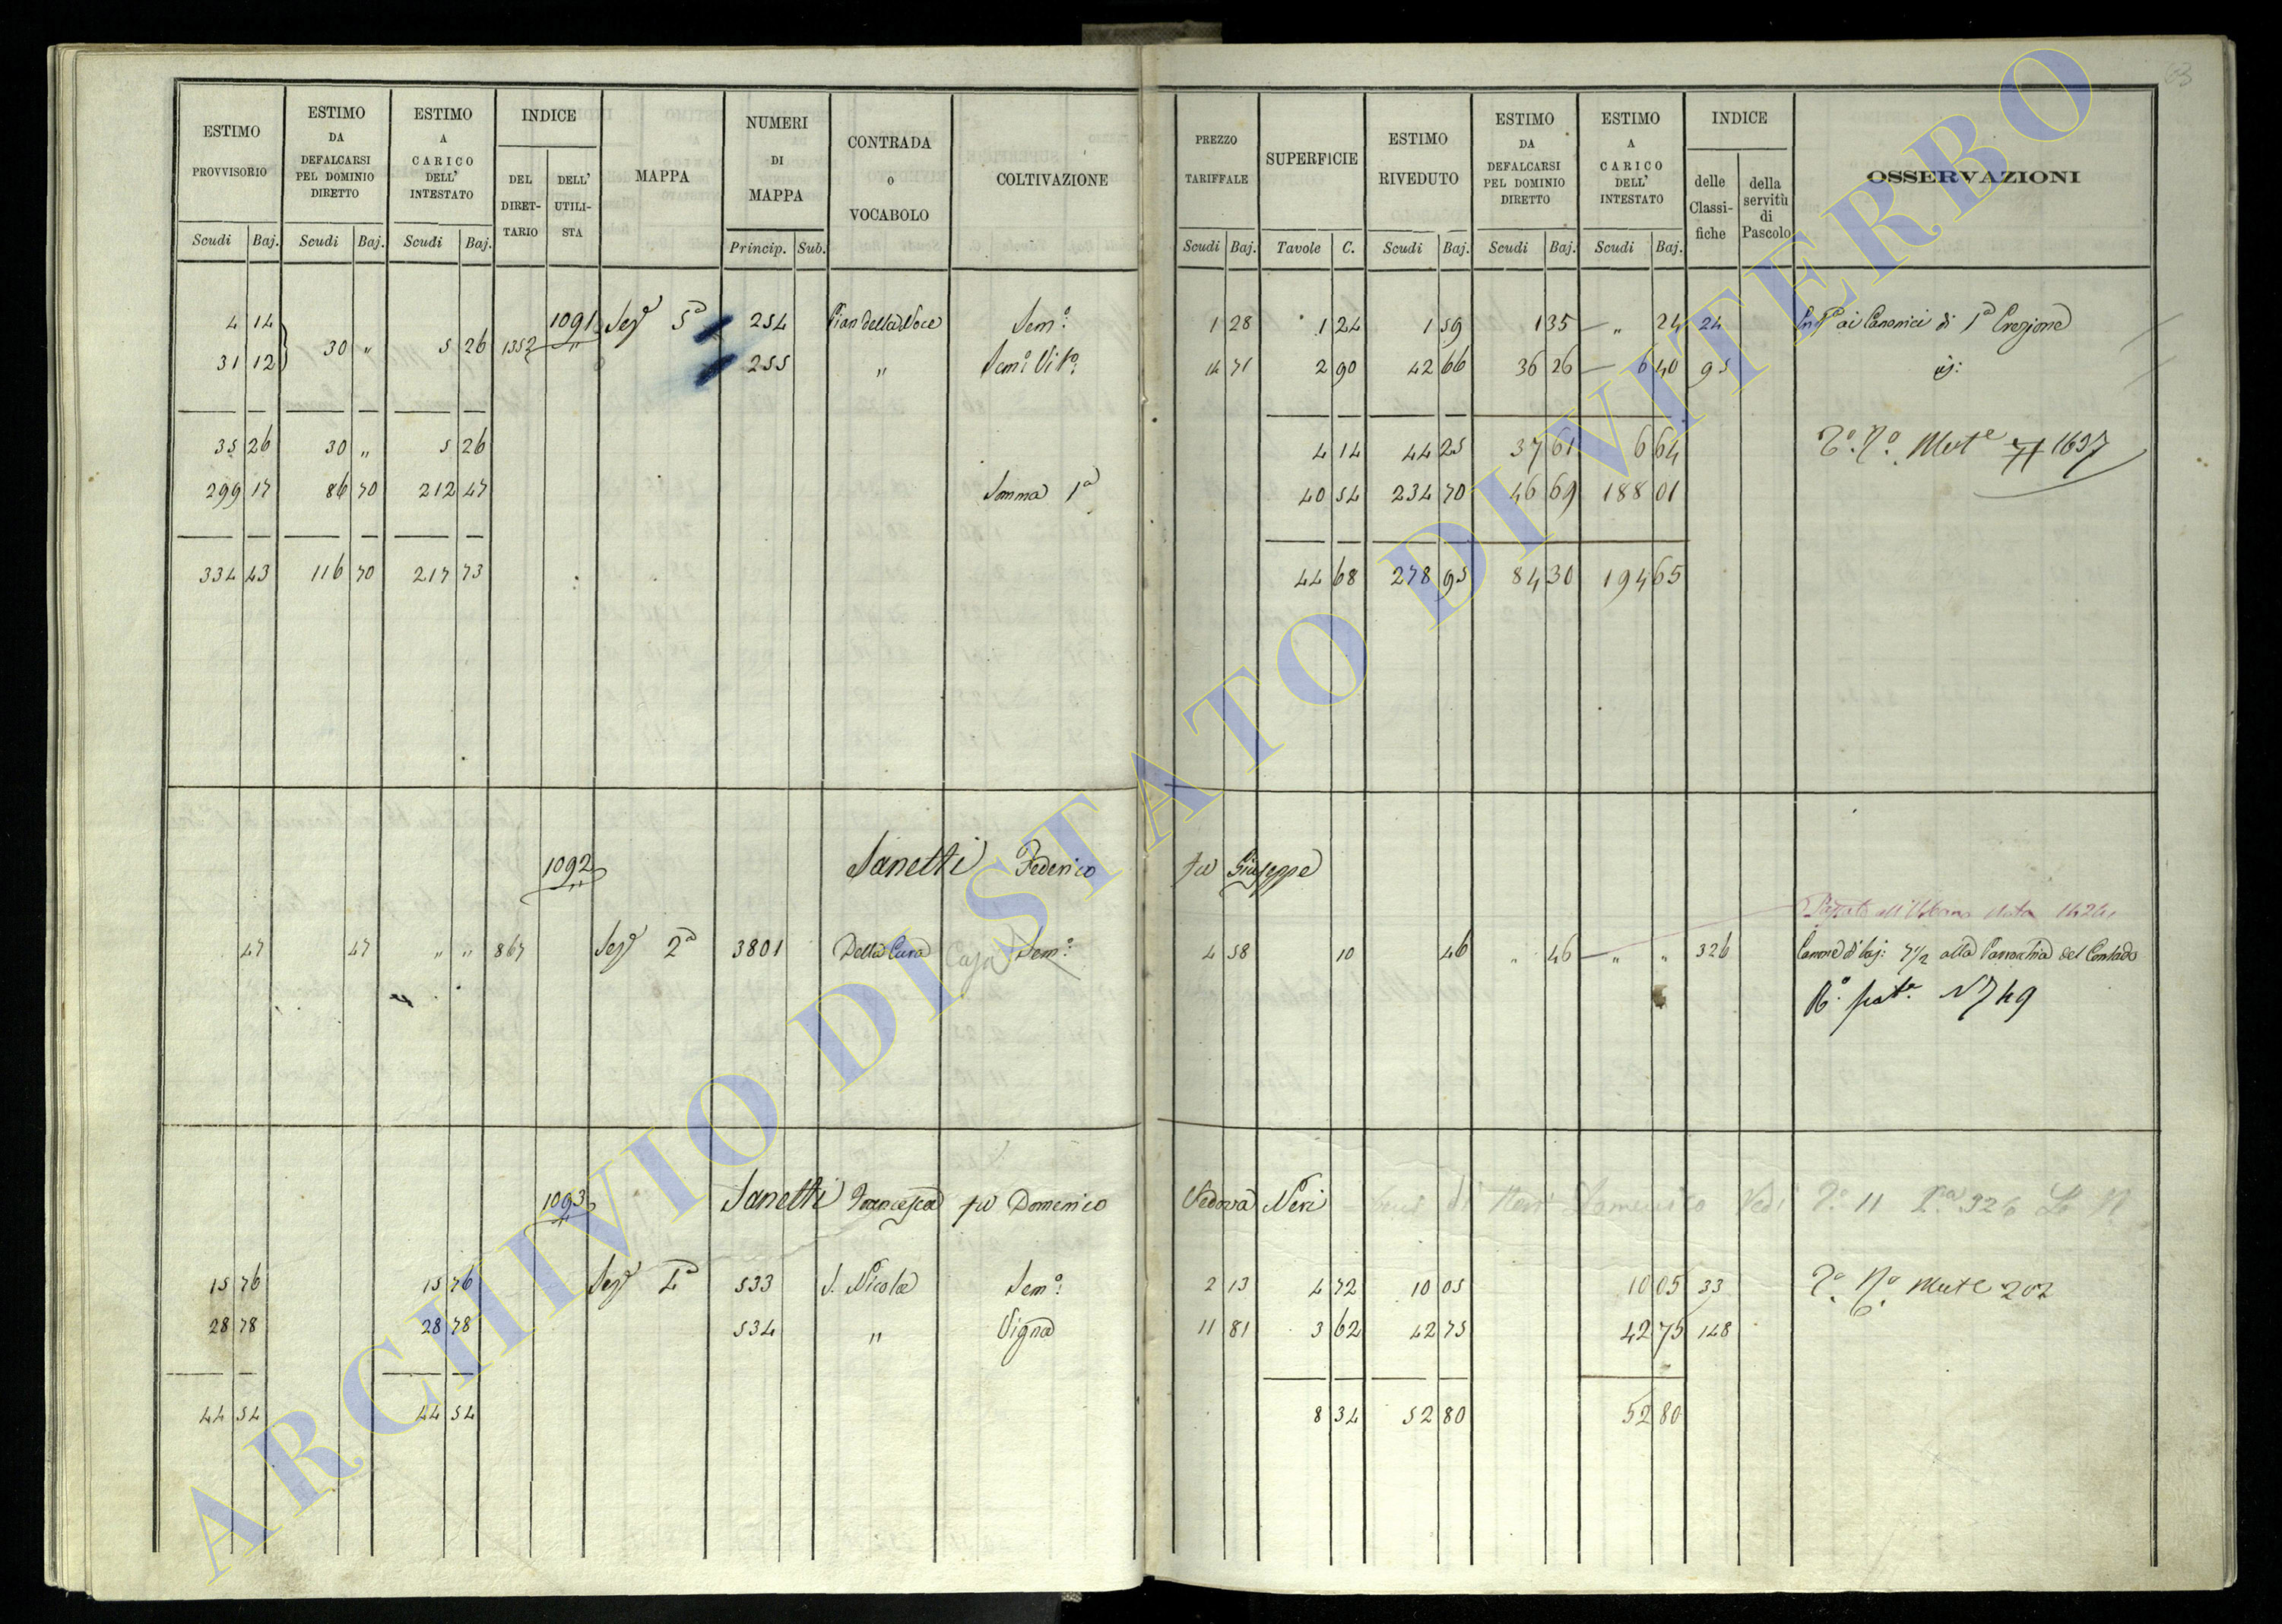 63
ESTIMO PROVVISORIO
ESTIMO DA DEFALCARSI PEL DOMINIO DIRETTO
ESTIMO A CARICO DELL' INTESTATO
INDICE
DEL DIRET-TARIO
DELL' UTILI-STA
MAPPA
NUMERI DI MAPPA
CONTRADA o VOCABOLO
COLTIVAZIONE
PREZZO TARIFFALE
SUPERFICIE
ESTIMO RIVEDUTO
ESTIMO DA DEFALCARSI PEL DOMINIO DIRETTO
ESTIMO A CARICO DELL' INTESTATO
INDICE
delle Classi-fiche
della servitù di Pascolo
OSSERVAZIONI
Scudi Baj. Scudi Baj. Scudi Baj. Princip. Sub. Scudi Baj. Tavole C. Scudi Baj. Scudi Baj. Scudi Baj.
4 14 1091 Sez.e 5a 254 Pian della Noce Sem.o 1 28 1 24 1 59 1 35 „ 24 24 ai Canonici di 1a Erezione
30 „ 5 26 1352
31 12 255 „ Sem.o Vit.o 14 71 2 90 42 66 36 26 6 40 95 id:
35 26 30 „ 5 26 4 14 44 25 37 61 6 64 1697
299 17 86 70 212 47 Somma 1a 40 54 234 70 46 69 188 01
334 43 116 70 217 73 44 68 278 95 84 30 194 65
1092 Sanetti Federico fu Giuseppe
Passato all'Urbano 1424
47 47 „ „ 867 Sez.e 2a 3801 Della Cura Casa Sem.o 4 58 10 46 „ 46 „ „ 326 Canone di baj: 7 1/2 alla Parrocchia del Contado
749
1093 Sanetti Francesca fu Domenico Vedova Neri di Neri Domenico Vedi 11 326
15 76 15 76 Sez.e 4a 533 S. Nicola Sem.o 2 13 4 72 10 05 10 05 33 202
28 78 28 78 534 „ Vigna 11 81 3 62 42 75 42 75 148
44 54 44 54 8 34 52 80 52 80
ARCHIVIO DI STATO DI VITERBO